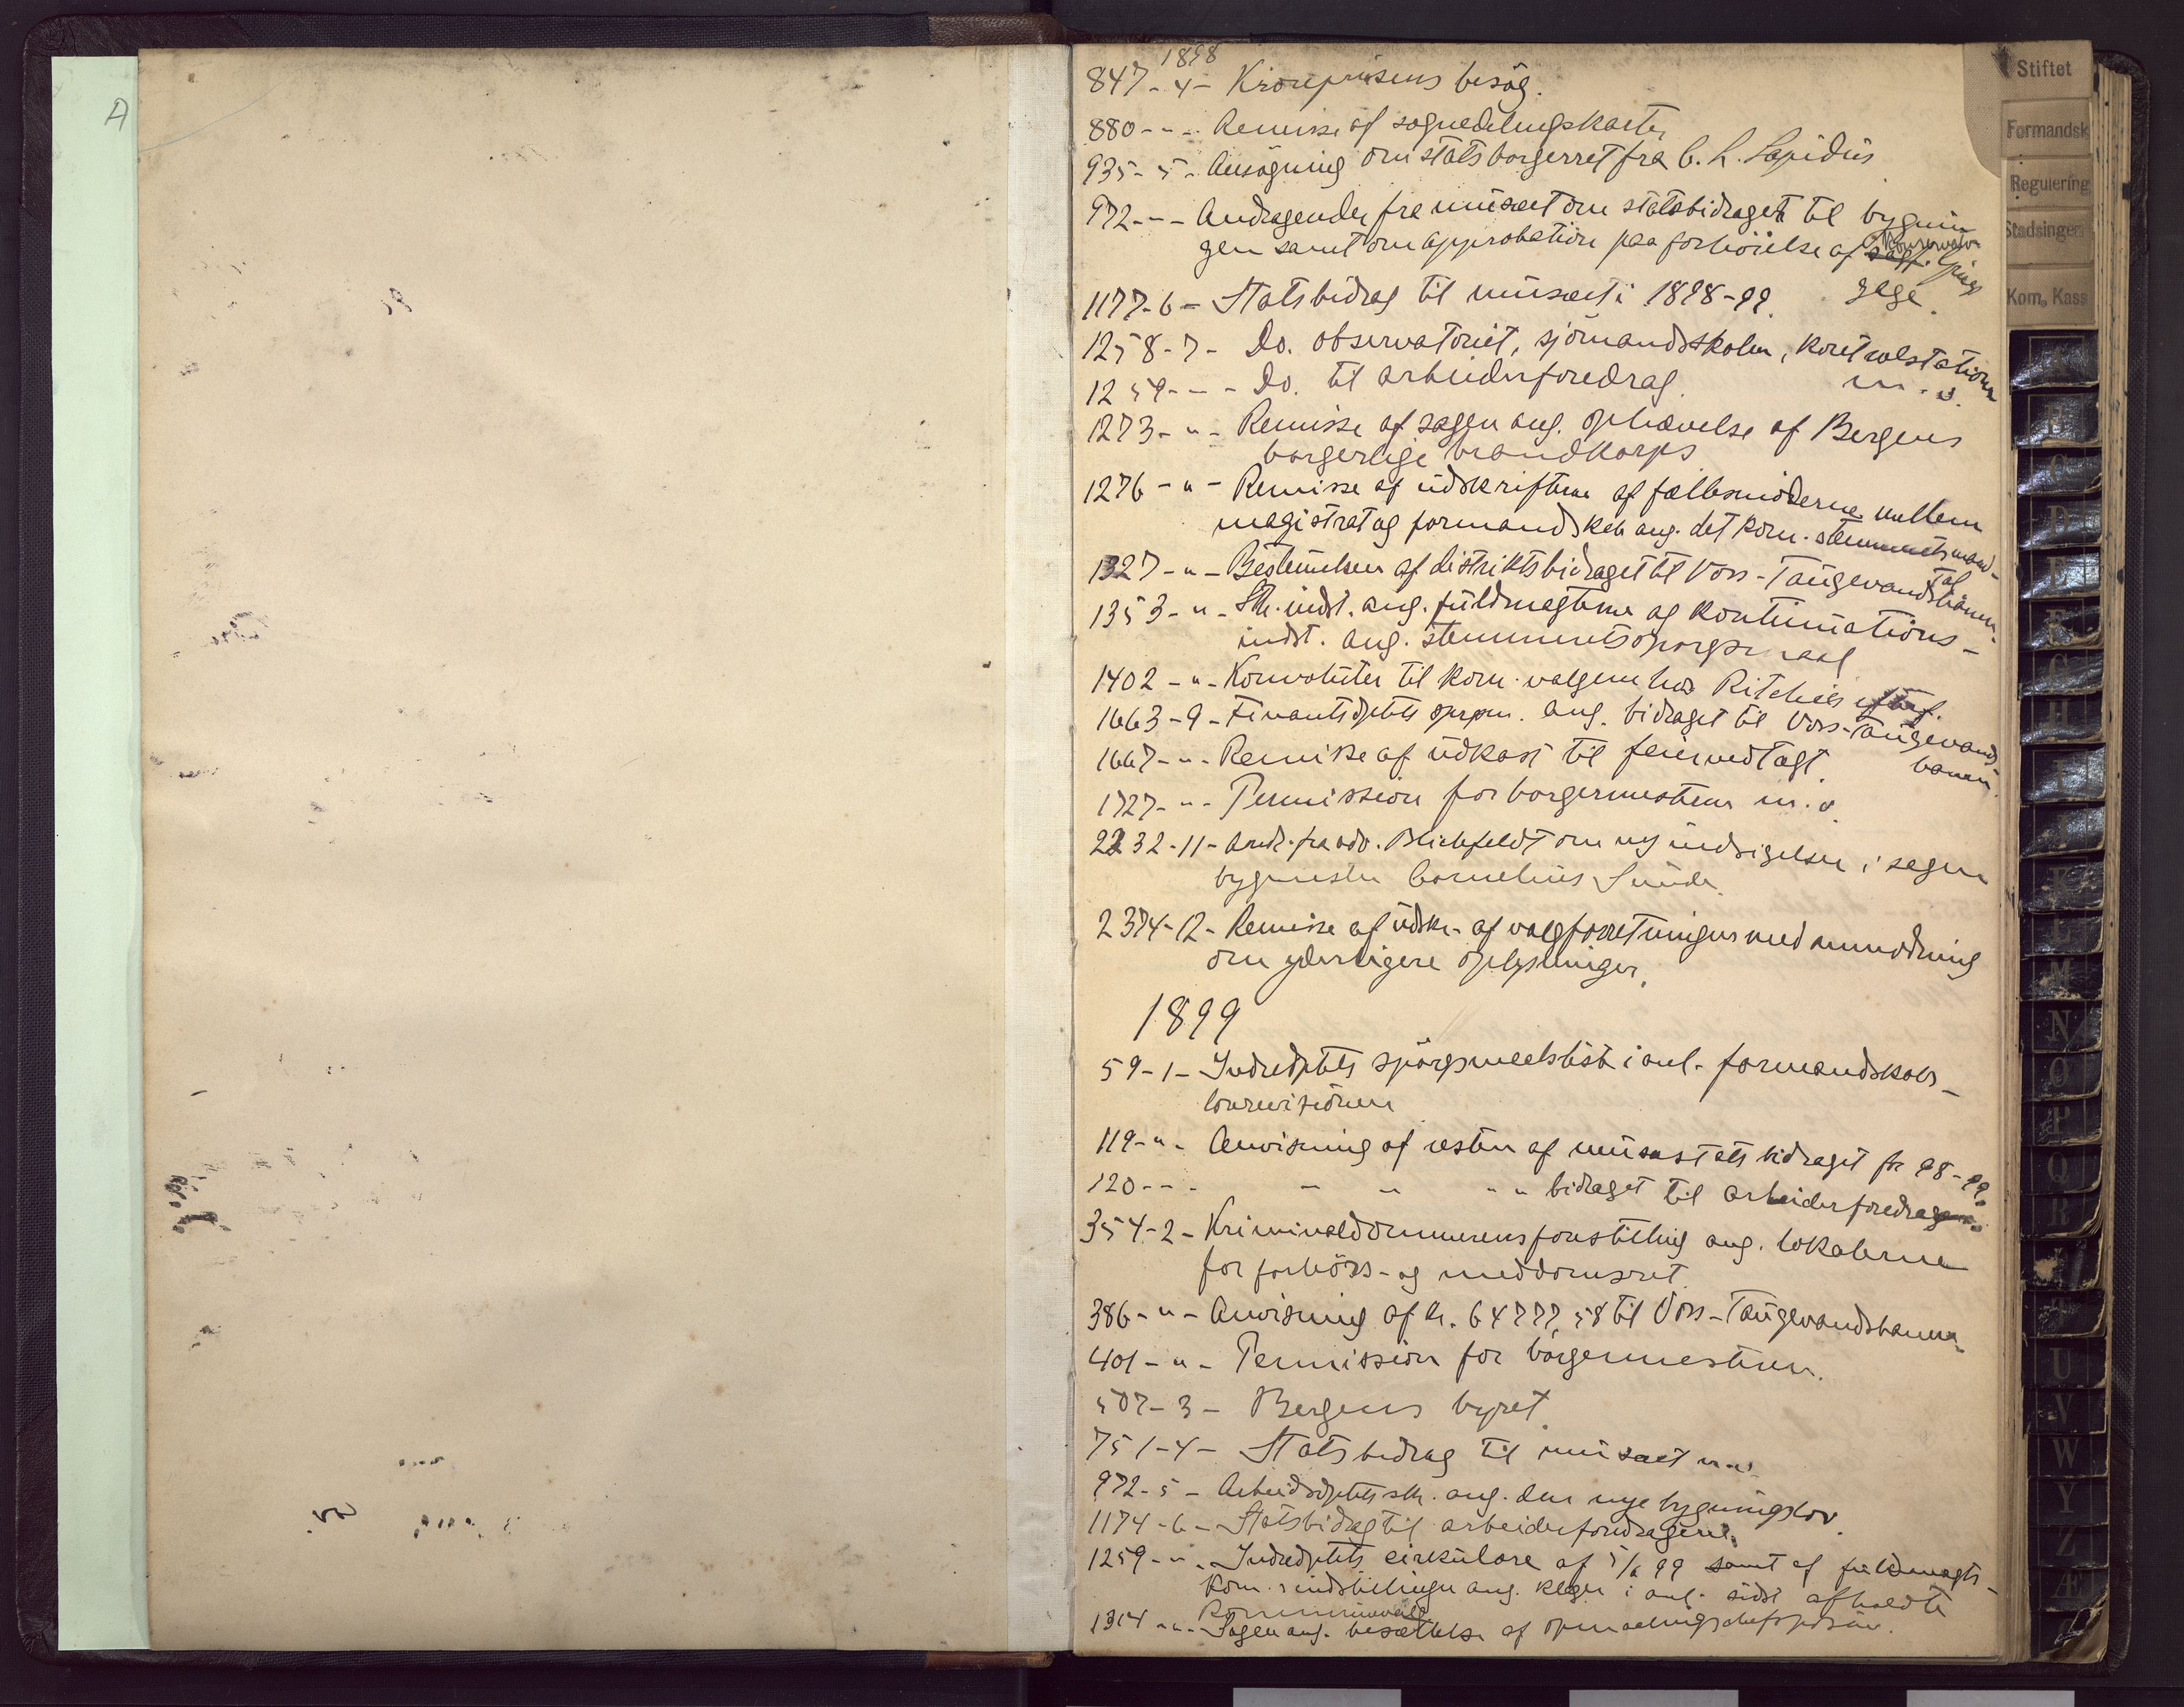 1898
847-4- Kronprinsens besøg.
880-"- Remisse af sognedelingskarter
935-5- Ansøgning om statsborgerret fra C. L. Lapidus
972-"- Andragender fra museet om statsbidraget til bygnin
gen samt om approbation paa forhøielse af konservator
gage.
1177-6- Statsbidrag til museet i 1898-99.
1258-7- Do. observatoriet, sjømandsskolen, kontrolstationen
m. v.
1259-"- Do. til arbeiderforedrag.
1273-"- Remisse af sagen ang. ophævelse af Bergens
borgerlige brandkorps
1276-"- Remisse af udskrifterne af fællesmøderne mellem
magistrat og formandskab ang. det kom. stemmeretsmand-
tal
1327-"- Bestemmelsen af distriktsbidraget til Voss-Taugevandsbanen.
1353-"- Skr. indst. ang. fuldmægterne og kontinuations-
indst. ang. stemmeretsspørgsmaal
1402-"- Konvoluter til kom. valgene hos Ritchies eftf.
1663-9- Finantsdptets sprgsm. ang. bidraget til Voss-Taugevands
banen.
1667-"- Remisse af udkast til feiervedtægt.
1727-"- Permission for borgermesteren m. v.
2232-11- Andr. fra adv. Blichfeldt om ny indsigelse i sagen
bygmester Cornelius Sunde.
2374-12- Remisse af udskr. af valgforretningen med anmodning
om yderligere oplysninger.
1899
59-1- Indredptets spørgsmaalsliste i anl. formandskabs-
lovrevisionen
119-"- Anvisning af resten af musæstatsbidraget for 98-99.
120-"- - " - " bidraget til arbeiderforedragene
354-2- Kriminaldommerens forestilling ang. lokalerne
for forhørs- og meddomsret.
386-"- Anvisning af kr. 64777,58 til Voss-Taugevandsbanen
401-"- Permission for borgermesteren.
507-3- Bergens byret.
751-4- Statsbidrag til musæet m.v.
972-5- Arbeidsdptets skr. ang. den nye bygningslov.
1174-6- Statsbidrag til arbeiderforedragene.
1259-"- Indredptets cirkulære af 5/6 99 samt af fuldmagts-
kom.s indstillinger ang. klager i anl. sidst afholdte
kommunevalg
1314-"- Sagen ang. besættelse af opmaalingschefsposten.
Stiftet
Formandsk
Regulering
Stadsingen
Kom. Kass
B
C
D
E
F
G
H
I
K
L
M
N
O
P
Q
R
U
V
W
Y
Z
Æ